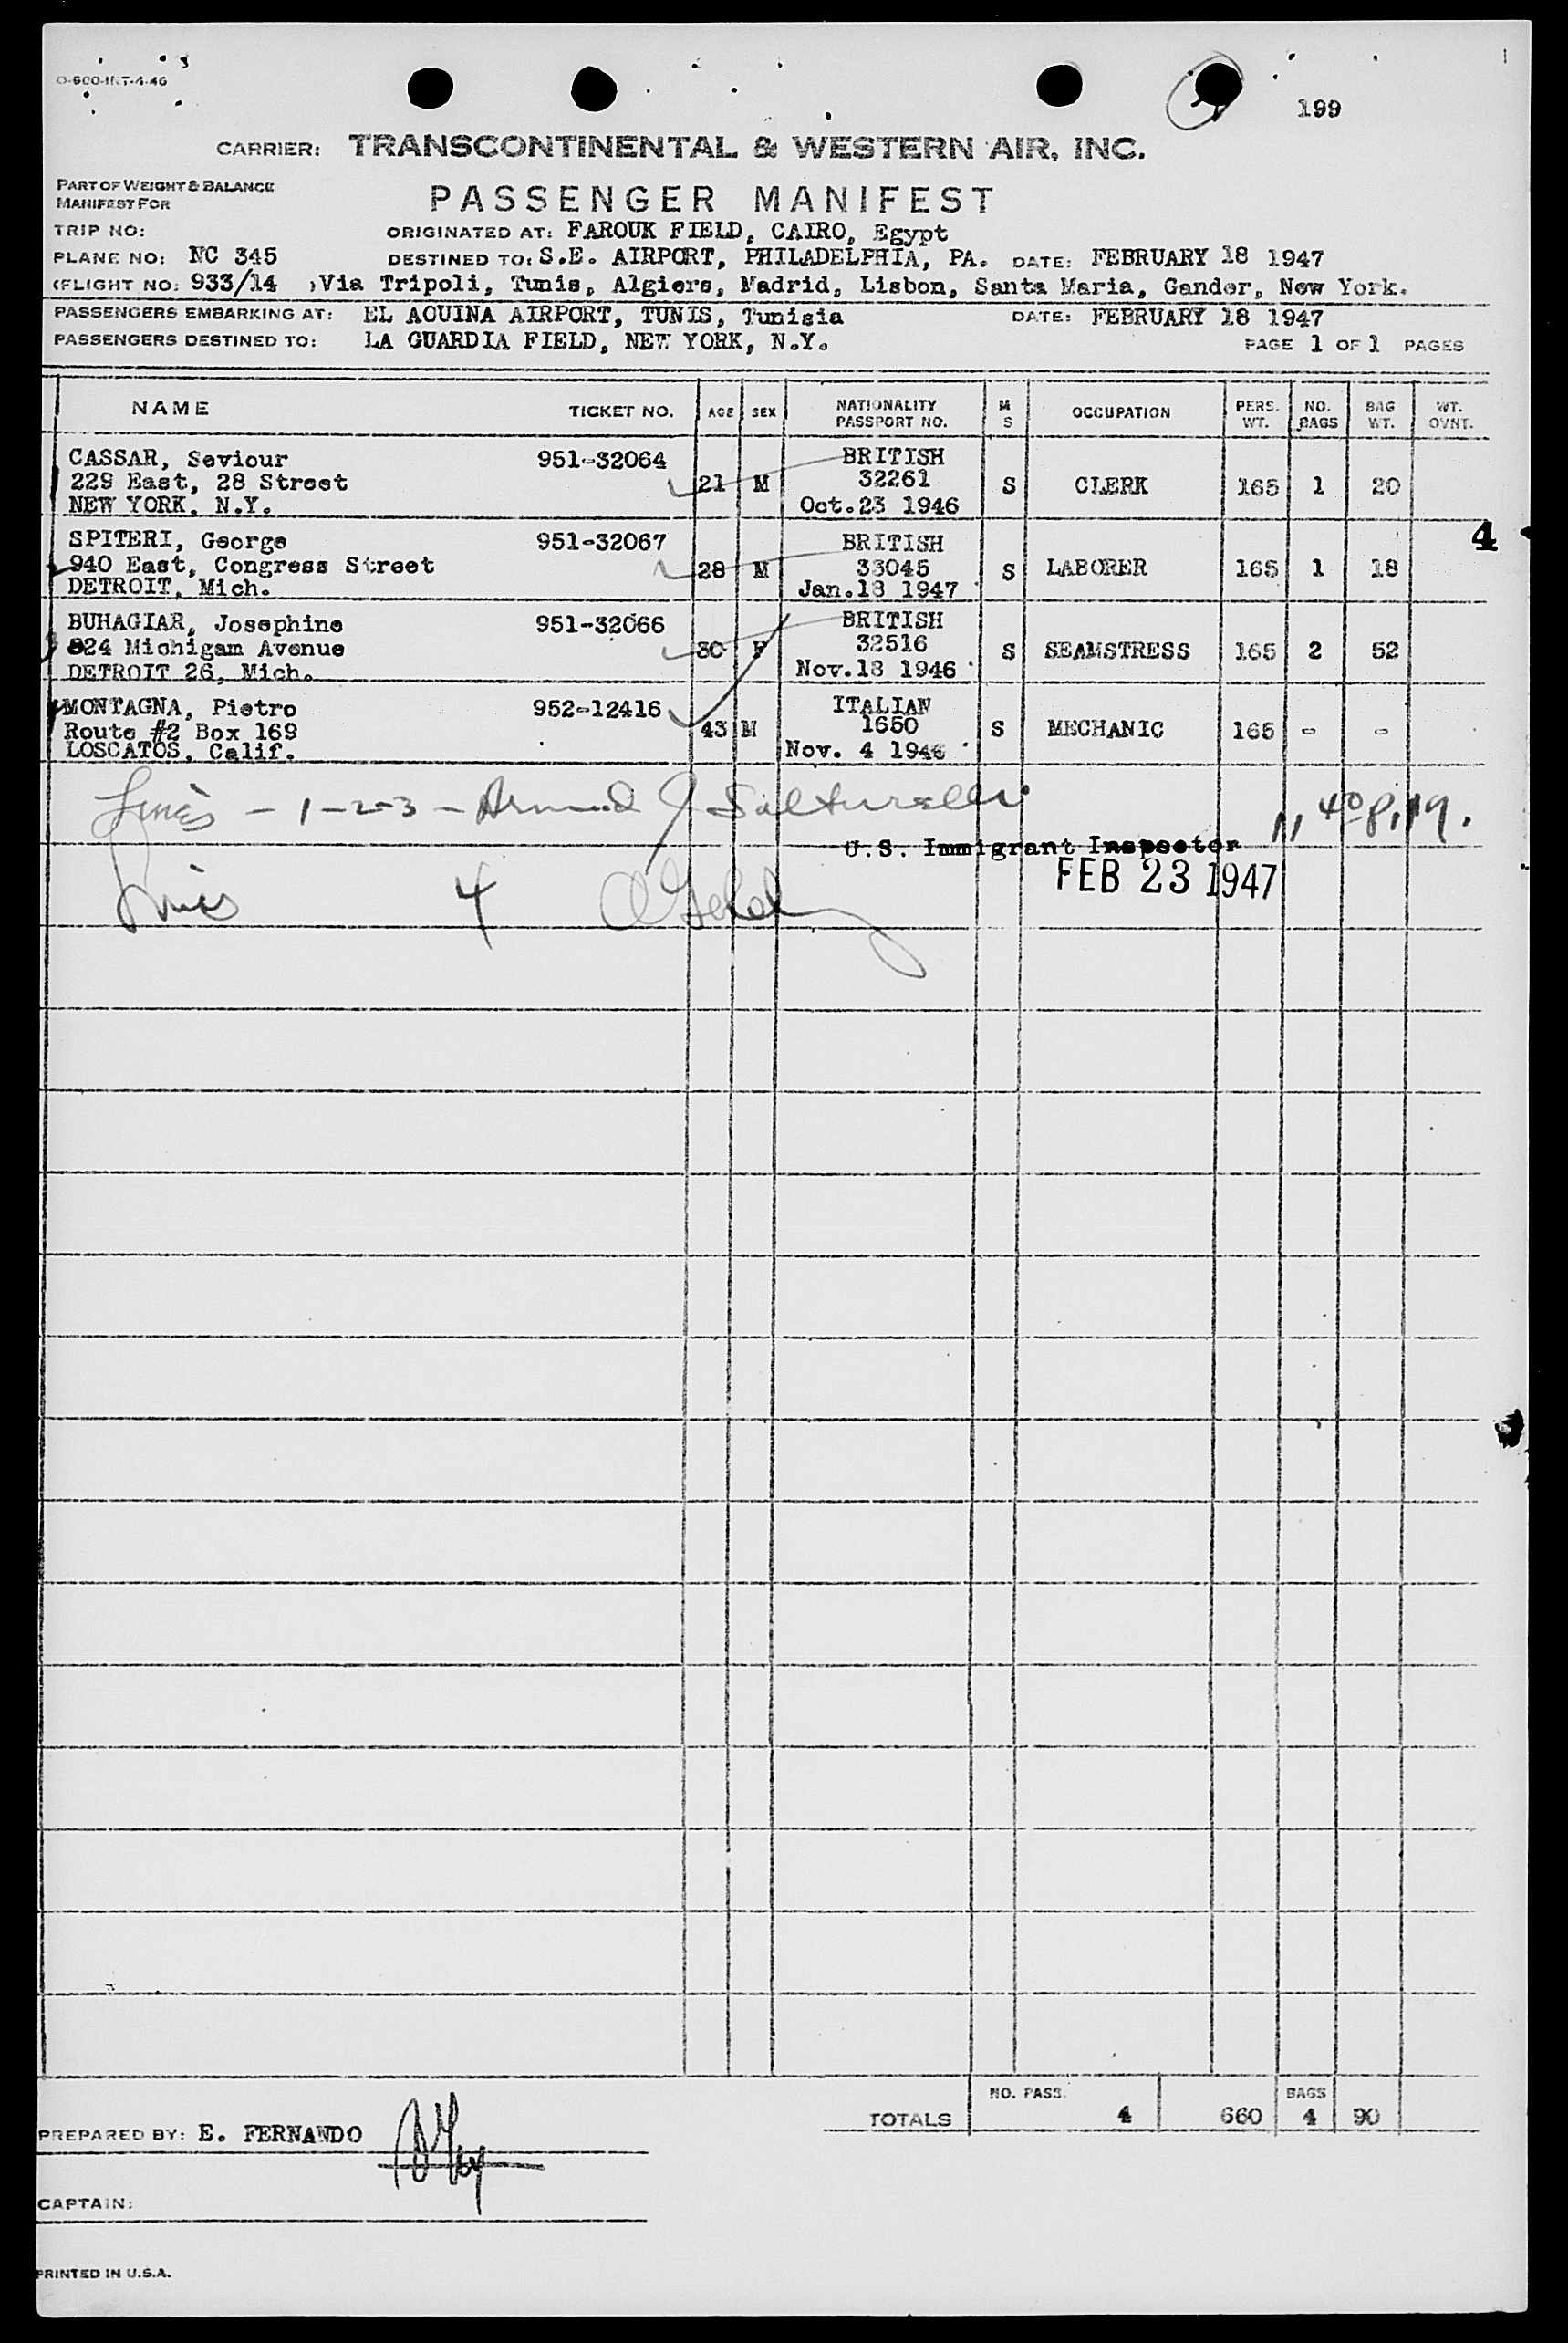 O-600-INT-4-46
199
CARRIER: TRANSCONTINENTAL & WESTERN AIR, INC.
PART OF WEIGHT & BALANCE
MANIFEST FOR
PASSENGER MANIFEST
TRIP NO: ORIGINATED AT: FAROUK FIELD, CAIRO, Egypt
PLANE NO: NC 345 DESTINED TO: S.E. AIRPORT, PHILADELPHIA, PA. DATE: FEBRUARY 18 1947
(FLIGHT NO: 933/14 )Via Tripoli, Tunis, Algiers, Madrid, Lisbon, Santa Maria, Gander, New York.
PASSENGERS EMBARKING AT: EL AOUINA AIRPORT, TUNIS, Tunisia DATE: FEBRUARY 18 1947
PASSENGERS DESTINED TO: LA GUARDIA FIELD, NEW YORK, N.Y. PAGE 1 OF 1 PAGES
NAME TICKET NO. AGE SEX NATIONALITY PASSPORT NO. M S OCCUPATION PERS. WT. NO. BAGS BAG WT. WT. OVNT.
CASSAR, Seviour 951-32064 BRITISH
229 East, 28 Street 21 M 32261 S CLERK 165 1 20
NEW YORK, N.Y. Oct.23 1946
SPITERI, George 951-32067 BRITISH 4
940 East, Congress Street 28 M 33045 S LABORER 165 1 18
DETROIT, Mich. Jan.18 1947
BUHAGIAR, Josephine 951-32066 BRITISH
824 Michigam Avenue 30 F 32516 S SEAMSTRESS 165 2 52
DETROIT 26, Mich. Nov.18 1946
MONTAGNA, Pietro 952-12416 ITALIAN
Route #2 Box 169 43 M 1650 S MECHANIC 165 - -
LOSCATOS, Calif. Nov. 4 1946
Lines - 1-2-3 - Armand J 11 40 P.M.
U.S. Immigrant Inspector
FEB 23 1947
Lines 4
TOTALS NO. PASS. 4 660 BAGS 4 90
PREPARED BY: E. FERNANDO
CAPTAIN:
PRINTED IN U.S.A.